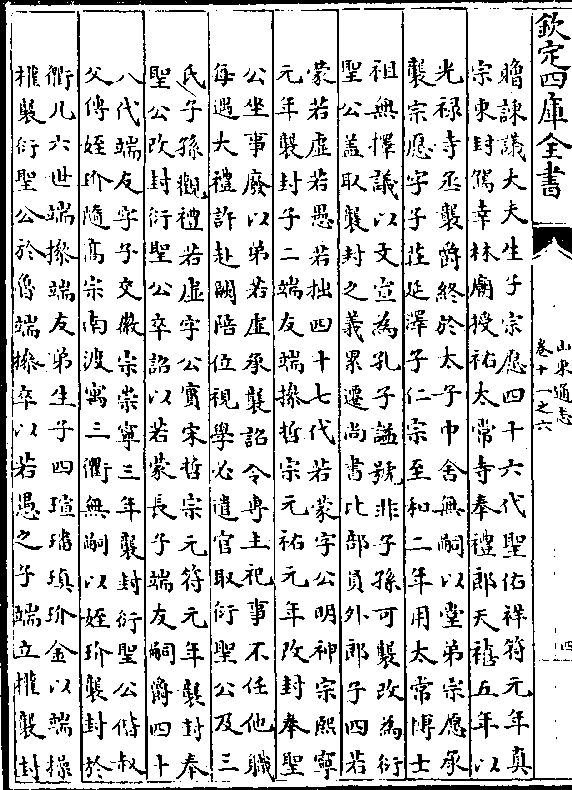 欽定四庫全書
山東通志
卷十一之六
四
贍諫議大夫生子宗愿四十六代聖佑祥符元年真
宗東封駕幸林廟授祐太常寺奉禮郎天禧五年以
光禄寺丞襲爵終於太子中舍無嗣以堂弟宗愿承
襲宗愿字子莊延澤子仁宗至和二年用太常博士
祖無擇議以文宣為孔子諡號非子孫可襲改為衍
聖公蓋取襲封之義累遷尚書比部員外郎子四若
蒙若虛若愚若拙四十七代若蒙字公明神宗熙寧
元年襲封子二端友端操哲宗元祐元年改封奉聖
公坐事廢以弟若虛承襲詔令專主祀事不任他職
每遇大禮許赴闕陪位視學必遣官取衍聖公及三
氏子孫觀禮若虛字公實宋哲宗元符元年襲封奉
聖公改封衍聖公卒詔以若蒙長子端友嗣爵四十
八代端友字子交徽宗崇寧三年襲封衍聖公偕叔
父傳姪玠隨高宗南渡寓三衢無嗣以姪玠襲封於
衢凡六世端操端友弟生子四瑄璠瑱玠金以端操
權襲衍聖公於魯端操卒以若愚之子端立權襲封